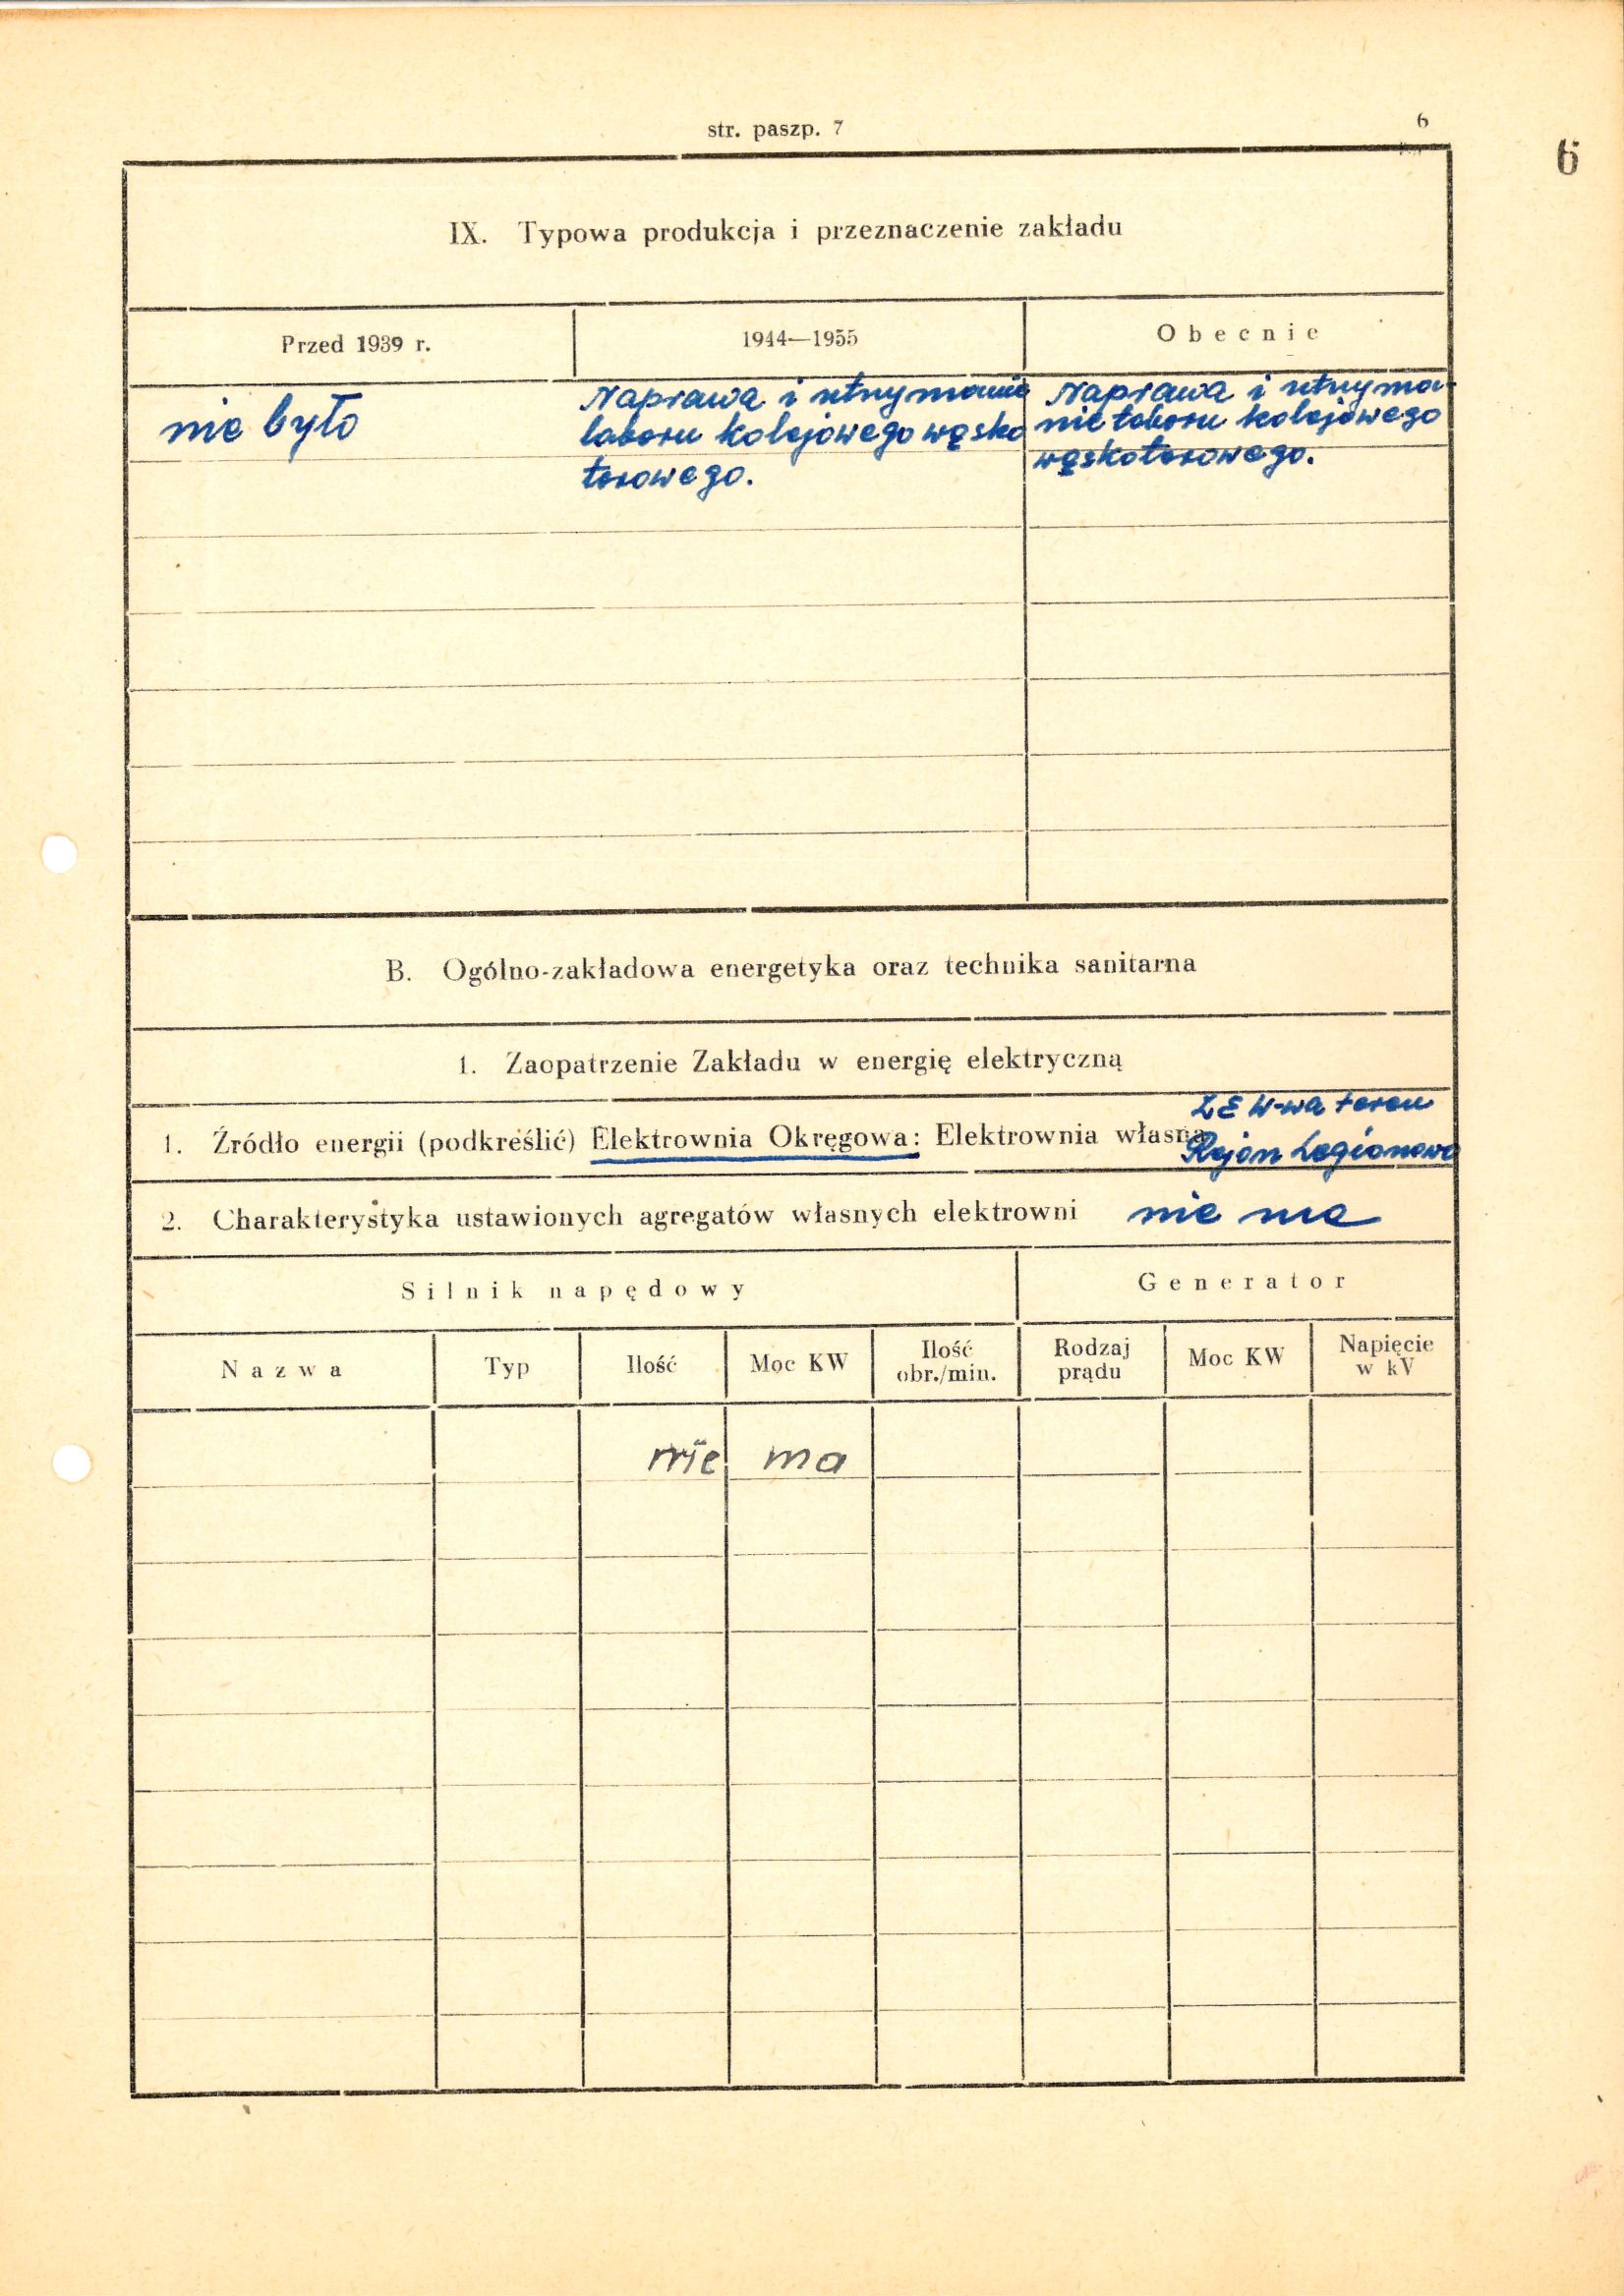 str. paszp. 7
6
6
IX. Typowa produkcja i przeznaczenie zakładu
Przed 1939 r.
1944—1955
Obecnie
nie było
Naprawa i utrzymanie
taboru kolejowego wąsko
torowego.
Naprawa i utrzyma-
nie taboru kolejowego
wąskotorowego.
B. Ogólno-zakładowa energetyka oraz technika sanitarna
1. Zaopatrzenie Zakładu w energię elektryczną
ZE W-wa teren
1. Źródło energii (podkreślić) Elektrownia Okręgowa: Elektrownia własna
Rejon Legionowo
2. Charakterystyka ustawionych agregatów własnych elektrowni nie ma
Silnik napędowy
Generator
Nazwa
Typ
Ilość
Moc KW
Ilość
obr./min.
Rodzaj
prądu
Moc KW
Napięcie
w kV
nie ma